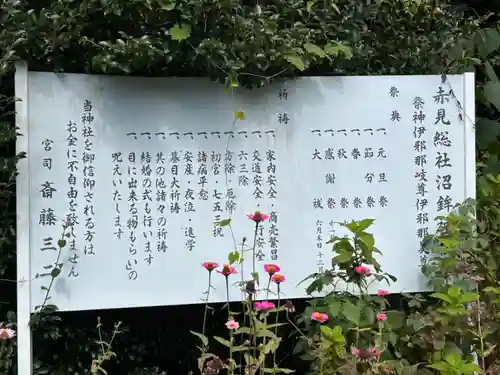 赤見総社沼鉾
祭神伊邪那岐尊伊邪
祭典
一、元旦祭
一、節分祭
一、春祭
一、秋祭
一、感謝祭
一、大祓 六月末日 十二
祈祷
一、家内安全 商売繁昌
一、交通安全
一、方除 厄除 六三除
一、初宮 七五三祝
一、諸病平愈
一、安産 夜泣 進学
一、墓目大祈祷
一、其の他諸々の祈祷
一、結婚の式も行います
一、目に出来る物もらいの
呪えいたします
当神社を御信仰される方は
お金に不自由を致しません
宮司 斎藤三